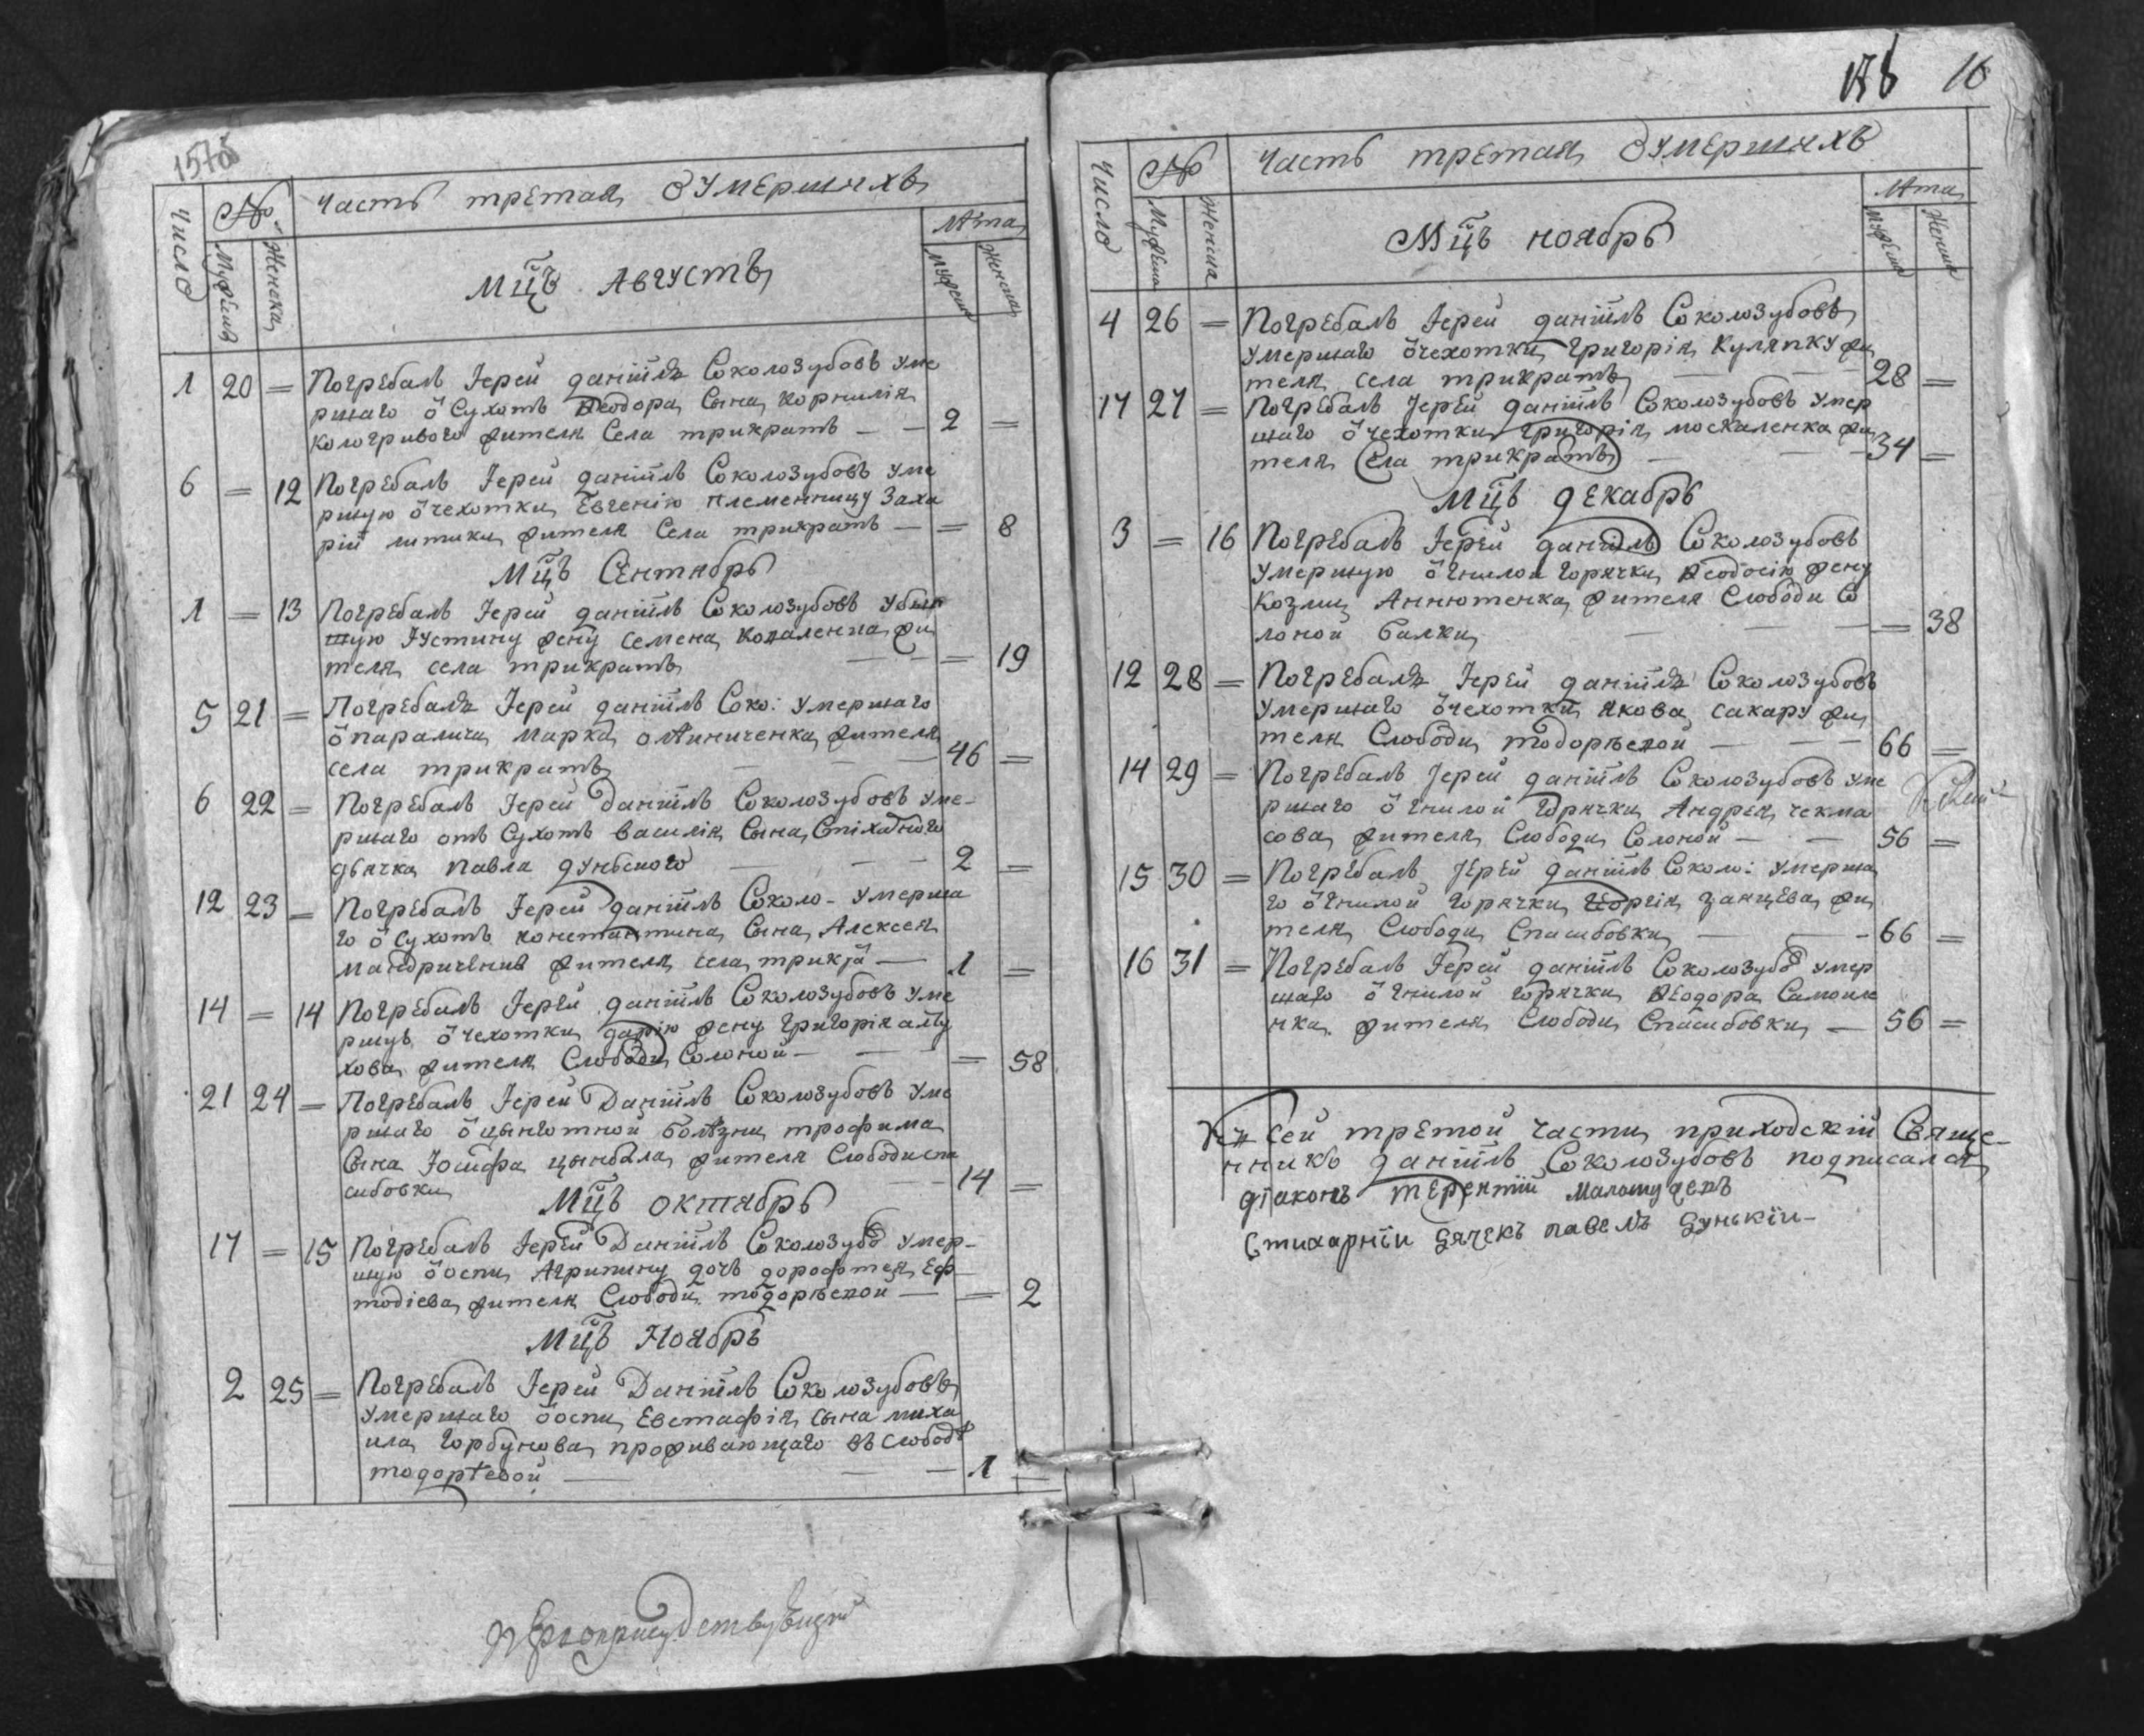 157об
Часть третая о умершихъ
Число
№
Мужеска
Женска
Мцъ Августъ
лѣта
Мужеска
Женска
1 20 = Погребалъ Іерей Даніилъ Соколозубовъ уме
ршаго ѿ сухотъ Ѳеодора сына Корнилія
Кологривого жителя села трикратъ — — 2 =
6 = 12 Погребалъ Іерей Даніилъ Соколозубовъ уме
ршую ѿ чехотки Евгенію племенницу Заха
рій литики жителя села трикратъ — = 8
Мцъ Сентябрь
1 = 13 Погребалъ Іерей Даніилъ Соколозубовъ убив
шую Іустину жену семена коваленка жи
теля села трикратъ — — = 19
5 21 = Погребалъ Іерей Даніилъ Соко: умершаго
ѿ паралича марка олѣйниченка жителя
села трикратъ — — — 46 =
6 22 = Погребалъ Іерей Даніилъ Соколозубовъ уме-
ршаго отъ сухотъ василія сына стіхарного
дьячка павла дунского — — — 2 =
12 23 = Погребалъ Іерей Даніилъ Соколо- умерша
го ѿ сухотъ константина сына Алексея
мандриченка жителя села трикра — 1 =
14 = 14 Погребалъ Іерей Даніилъ Соколозубовъ уме
ршую ѿ чехотки дарію жену григорія
хова жителя слободи солоной — — = 58
21 24 = Погребалъ Іерей Даніилъ Соколозубовъ уме
ршаго ѿ цынготной болѣзни трофима
сына Іосифа цимбала жителя слободи спа
сибовки — 14 =
Мцъ октябрь
17 = 15 Погребалъ Іерей Даніилъ Соколозубо умер-
шую ѿ оспи Агрипину дочь дорофтея Еф
тодіева жителя слободи тодорѣвой — = 2
Мцъ Ноябрь
2 25 = Погребалъ Іерей Даніилъ Соколозубовъ
умершаго ѿ оспи Евстафія сына миха
ила горбунова проживающаго въ слободѣ
тодорѣвой — — — 1 =
158 16
Часть третая о умершихъ
Число
№
Мужеска
Женска
Мцъ ноябрь
лѣта
Мужеска
Женска
4 26 = Погребалъ Іерей Даніилъ Соколозубовъ
умершаго ѿ чехотки григорія куляпку жи
теля села трикратъ — — 28 =
17 27 = Погребалъ Іерей Даніилъ Соколозубовъ умер
шаго ѿ чехотки григорія москаленка жи
теля села трикратъ — — 34 =
Мцъ декабрь
3 = 16 Погребалъ Іерей Даніилъ Соколозубовъ
умершую ѿ гнилой горячки Ѳеодосію жену
козми Аннютенка жителя слободи со
лоной балки — — — = 38
12 28 = Погребалъ Іерей Даніилъ Соколозубовъ
умершаго ѿ чехотки якова сакару жи
теля слободи тодорѣвой — — — 66 =
14 29 = Погребалъ Іерей Даніилъ Соколозубовъ уме
ршаго ѿ гнилой горячки Андрея чекма
сова жителя слободи солоной — — 56 =
15 30 = Погребалъ Іерей Даніилъ Соколо: умерша
го ѿ гнилой горячки георгія занцева жи
теля слободи спасибовки — — 66 =
16 31 = Погребалъ Іерей Даніилъ Соколозубо умер
шаго ѿ гнилой горячки Ѳеодора самоиле
нка жителя слободи спасибовки — 56 =
Къ сей третой части приходскій Свяще-
нникъ Даніилъ Соколозубовъ подписался
діаконъ терентій
Стихарній дячекъ павелъ дунькій